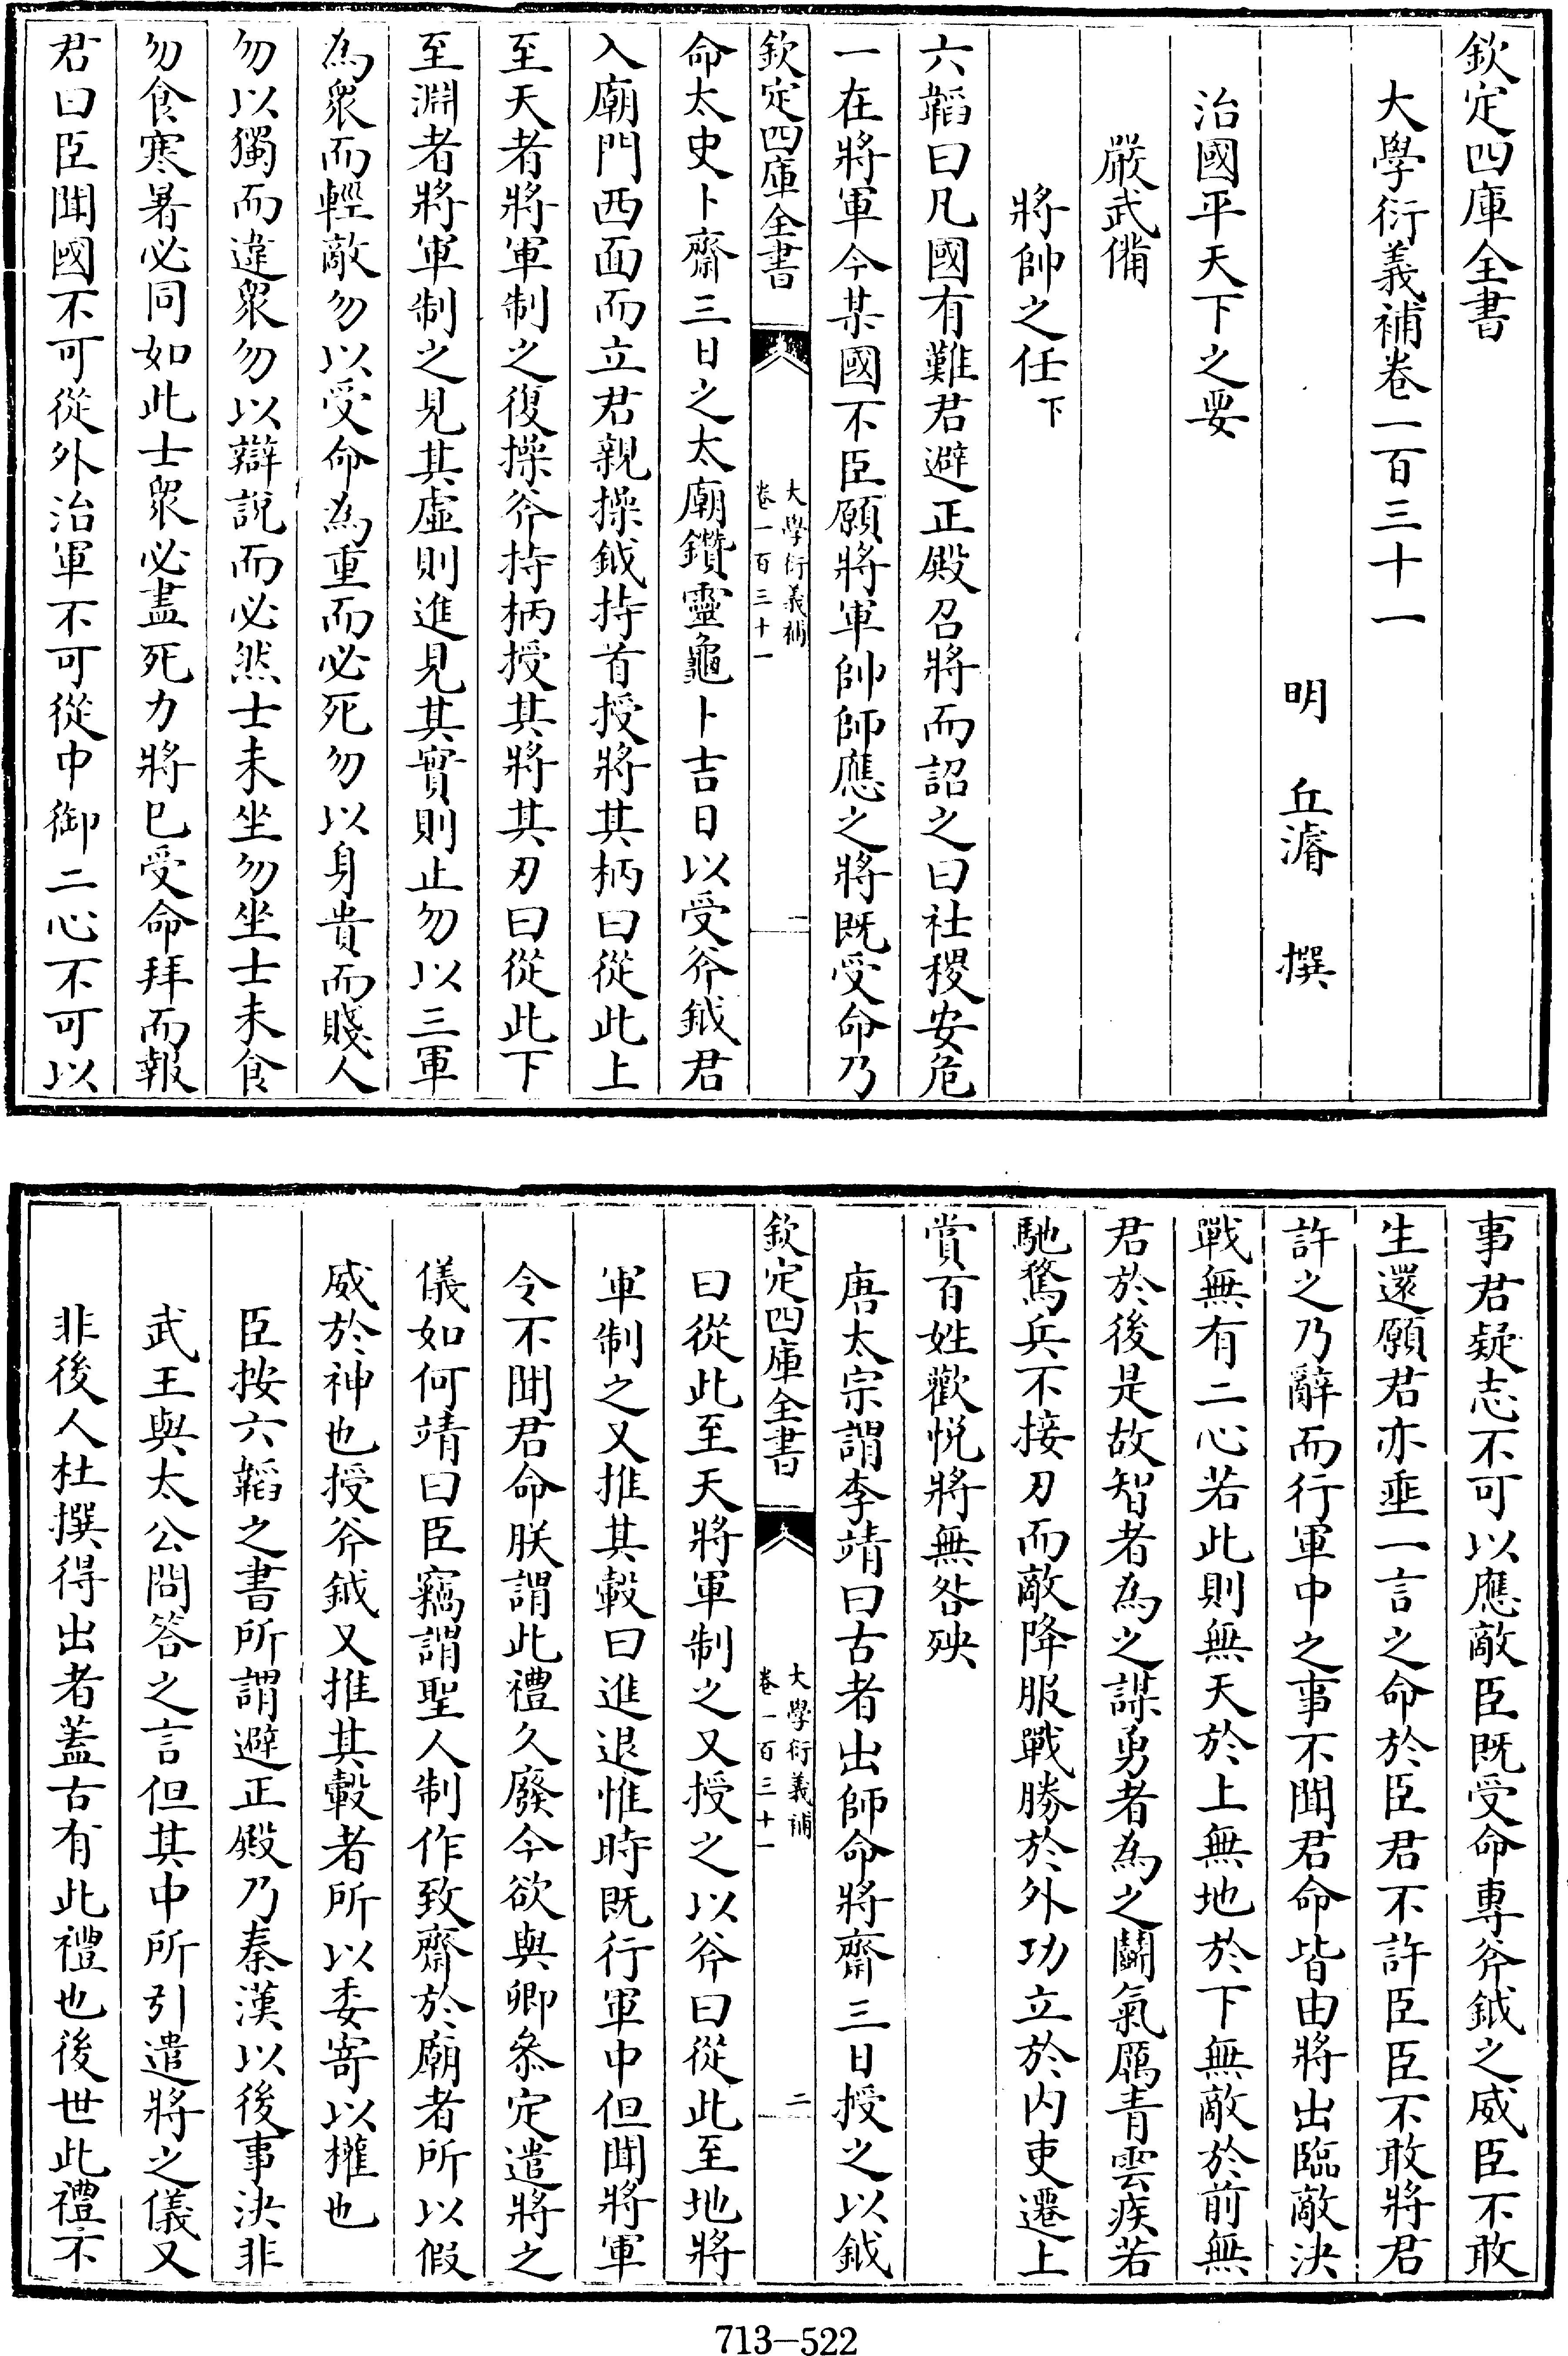 欽定四庫全書
大學衍義補卷一百三十一
明 丘濬 撰
治國平天下之要
嚴武備
將帥之任下
六韜曰凡國有難君避正殿召將而詔之曰社稷安危
一在將軍今某國不臣願將軍帥師應之將既受命乃
欽定四庫全書
大學衍義補
卷一百三十一
一
命太史卜齋三日之太廟鑽靈龜卜吉日以受斧鉞君
入廟門西面而立君親操鉞持首授將其柄曰從此上
至天者將軍制之復操斧持柄授其將其刃曰從此下
至淵者將軍制之見其虛則進見其實則止勿以三軍
為衆而輕敵勿以受命為重而必死勿以身貴而賤人
勿以獨而違衆勿以辯説而必然士未坐勿坐士未食
勿食寒暑必同如此士衆必盡死力將已受命拜而報
君曰臣聞國不可從外治軍不可從中御二心不可以
事君疑志不可以應敵臣既受命專斧鉞之威臣不敢
生還願君亦垂一言之命於臣君不許臣臣不敢將君
許之乃辭而行軍中之事不聞君命皆由將出臨敵決
戰無有二心若此則無天於上無地於下無敵於前無
君於後是故智者為之謀勇者為之鬭氣厲青雲疾若
馳騖兵不接刃而敵降服戰勝於外功立於内吏遷上
賞百姓歡悦將無咎殃
唐太宗謂李靖曰古者出師命將齋三日授之以鉞
欽定四庫全書
大學衍義補
卷一百三十一
二
曰從此至天將軍制之又授之以斧曰從此至地將
軍制之又推其轂曰進退惟時既行軍中但聞將軍
令不聞君命朕謂此禮久廢今欲與卿參定遣將之
儀如何靖曰臣竊謂聖人制作致齋於廟者所以假
威於神也授斧鉞又推其轂者所以委寄以權也
臣按六韜之書所謂避正殿乃秦漢以後事決非
武王與太公問答之言但其中所引遣將之儀又
非後人杜撰得出者蓋古有此禮也後世此禮不
713-522